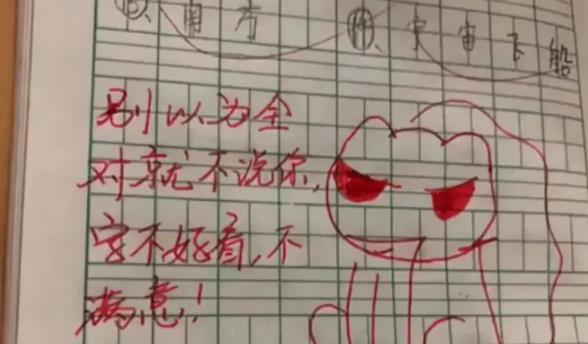 ⑬、南方 ⑭、宇宙飞船
别以为全
对就不说你,
字不好看,不
满意!